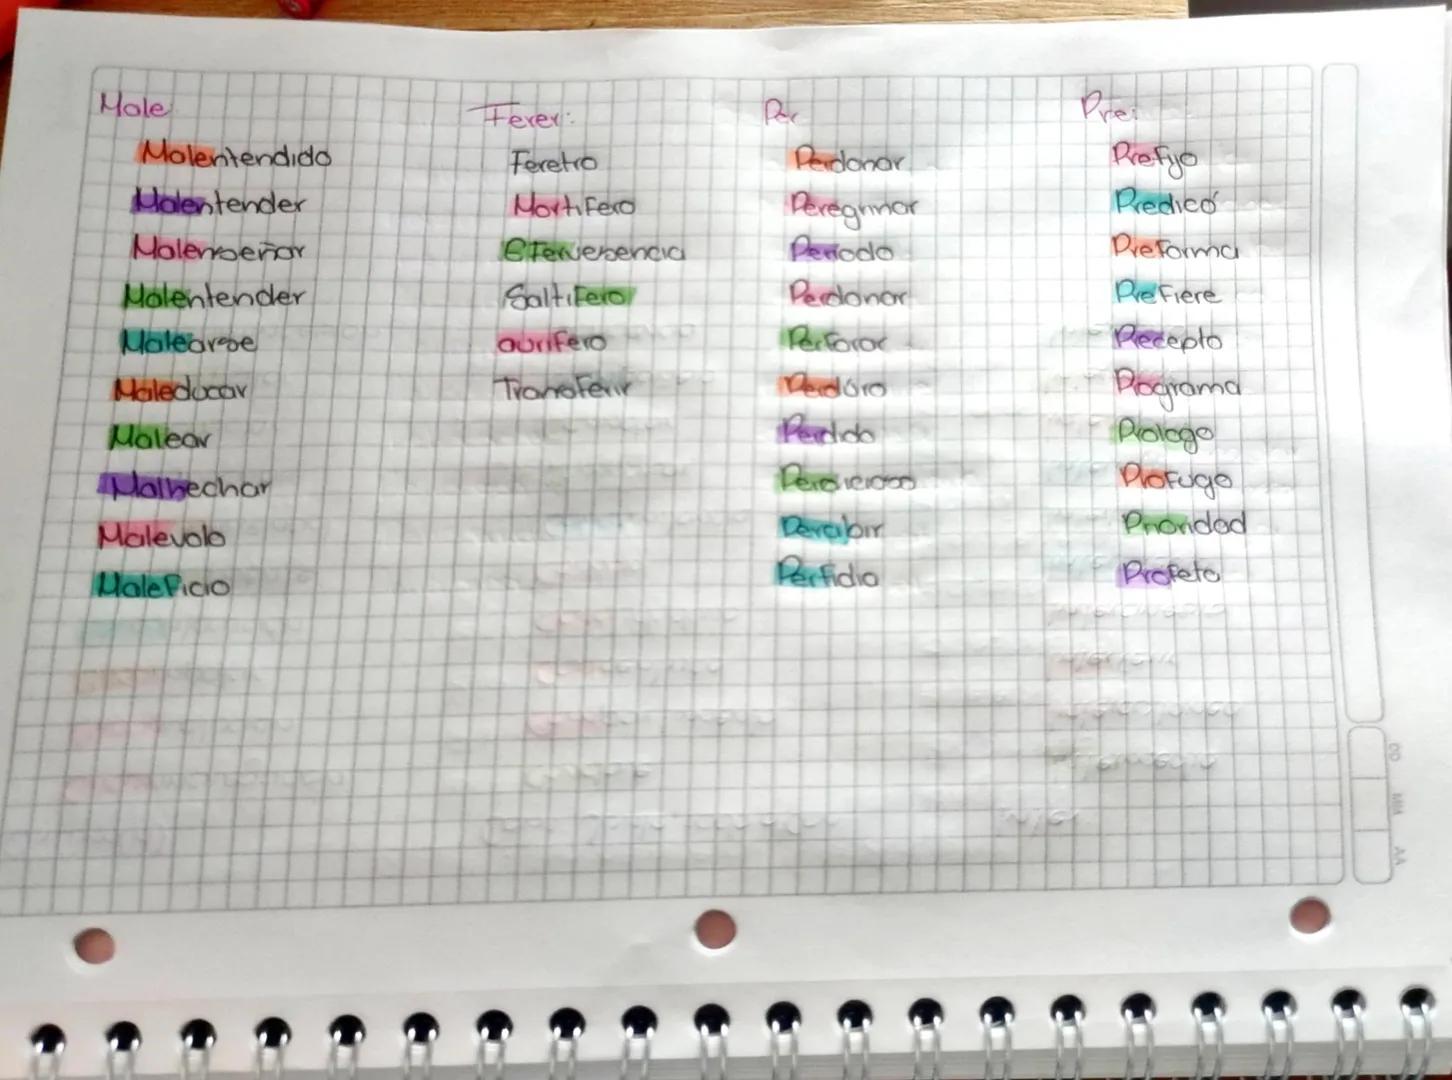 Male
Malentendido
Malentender
Malenseñar
Malentender
Malearse
Maleducar
Malear
Malhechar
Malevolo
Maleficio
Ferer:
Feretro
Mortifero
Efervesencia
Saltifero
aurifero
Transferir
Per
Perdonar
Peregrinar
Periodo
Perdonar
Perforar
Perduro
Perdido
Percibir
Perfidia
Pre:
Prefijo
Predicó
Preforma
Prefiere
Precepto
Programa
Prologo
Profugo
Prioridad
Profeta
CD
MM
AA